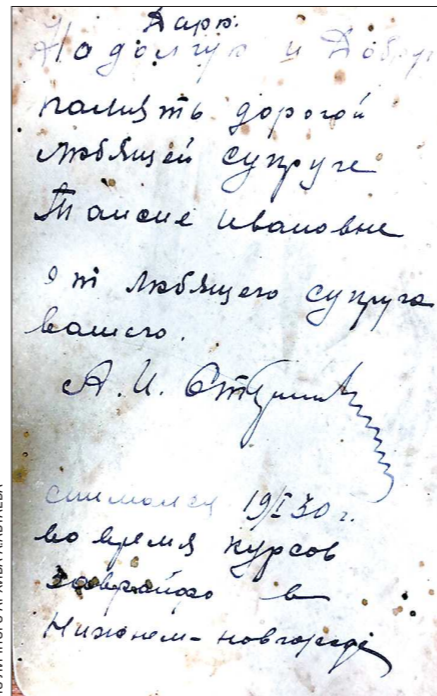 Дарю.
На долгую и Добрую
память дорогой
любящей супруге
Таисие Ивановне
от любящего супруга
вашего.
А. И.
снимался 19/I 30 г.
во время курсов
в
Нижнем-новгороде